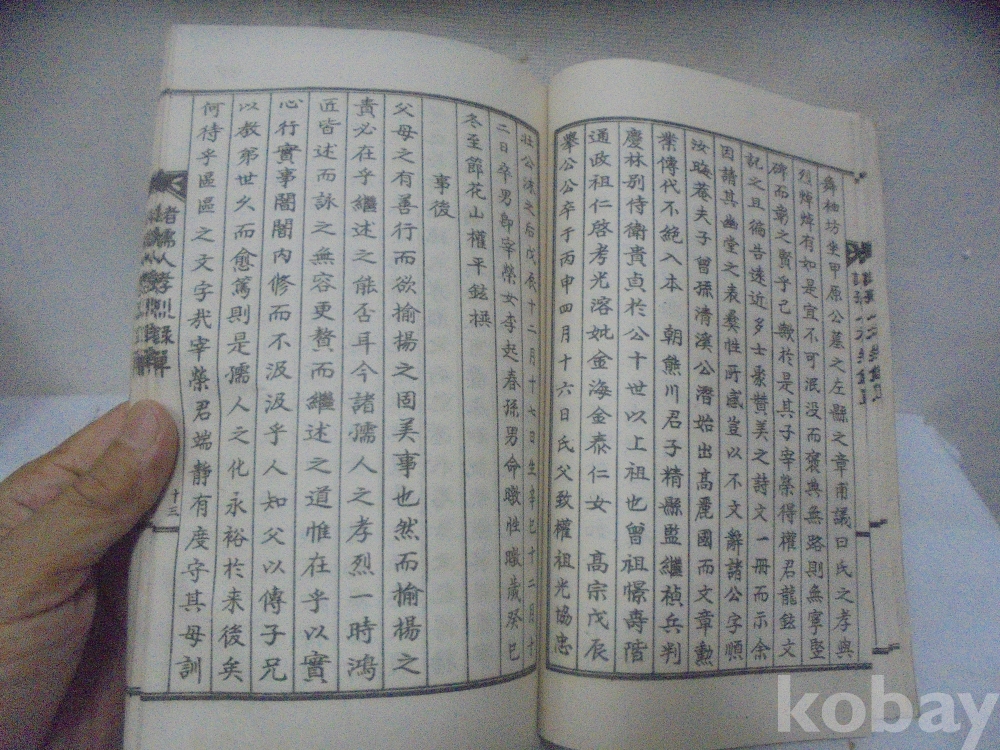 舞袖坊坐甲原公墓之左縣之章甫議曰氏之孝與
烈煒煒有如是宜不可泯没而褒典無路則無寧竪
碑而彰之賢乎已歟於是其子宰榮得權君龍鉉文
記之且徧告遠近多士裒贊美之詩文一冊而示余
因請其幽堂之表彜性所感豈以不文辭諸公字順
汝晦菴夫子曾孫清溪公潛始出高麗國而文章勳
業傳代不絶入本 朝熊川君子精縣監繼禎兵判
慶林別侍衛貴貞於公十世以上祖也曾祖憬壽階
通政祖仁啓考光溶妣金海金泰仁女 高宗戊辰
擧公公卒于丙申四月十六日氏父致權祖光協忠
壯公沫之后戊辰十二月十七日生辛巳十二月十
二日卒男卽宰榮女李起春孫男命暾性暾歲癸巳
冬至節花山權平鉉撰
事後
父母之有善行而欲揄揚之固美事也然而揄揚之
責必在乎繼述之能否耳今諸孺人之孝烈一時鴻
匠皆述而詠之無容更贅而繼述之道惟在乎以實
心行實事闇闇內修而不汲汲乎人知父以傳子兄
以教弟世久而愈篤則是孺人之化永裕於来後矣
何待乎區區之文字㦲宰榮君端静有度守其母訓
諸孺人孝烈錄單
十三
kobay